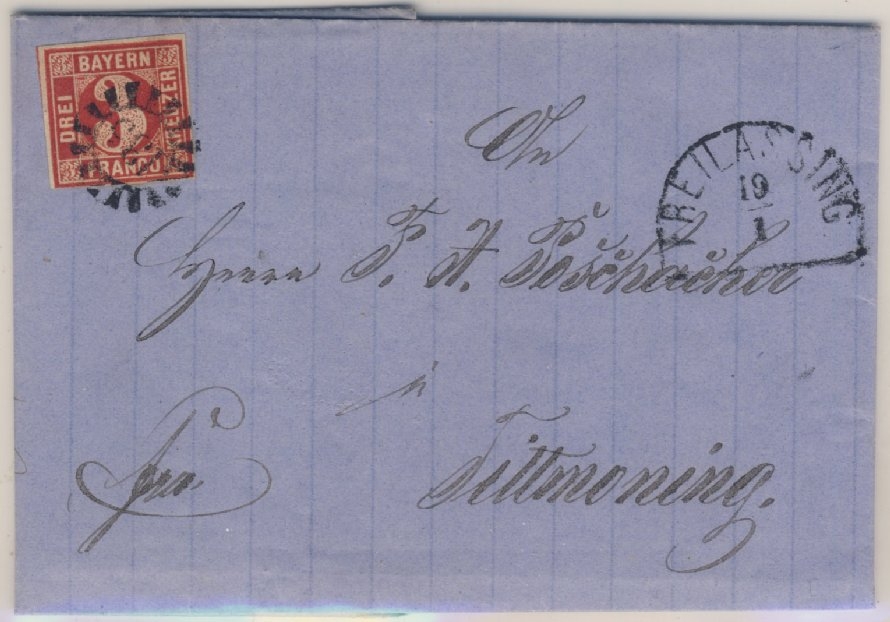 BAYERN
DREI
3
KREUZER
FRANCO
An
FREILASSING
19
1
Herrn P. A. Pöschacher
in
fro
Tittmoning.